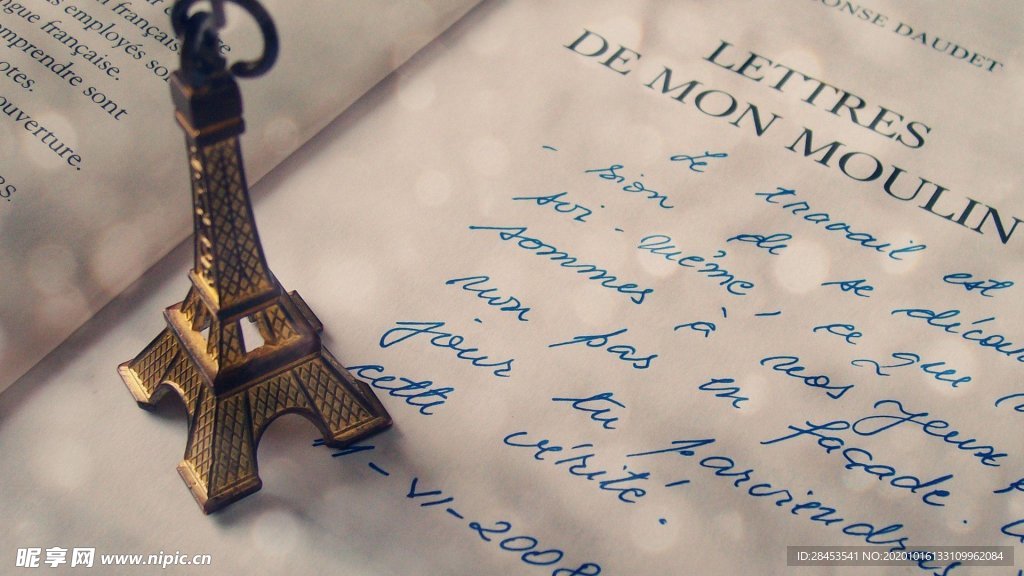 français
ngue française.
employés so
omprendre sont
otes.
ouverture.
rs.
ONSE DAUDET
LETTRES
DE MON MOULIN
- Le travail est
sion de se décou
soi-même, ce que
sommes à nos yeux
non pas en façade.
jour tu parviendras
cette vérité.
-VI-2008
昵享网 www.nipic.cn
ID:28453541 NO:20201016133109962084